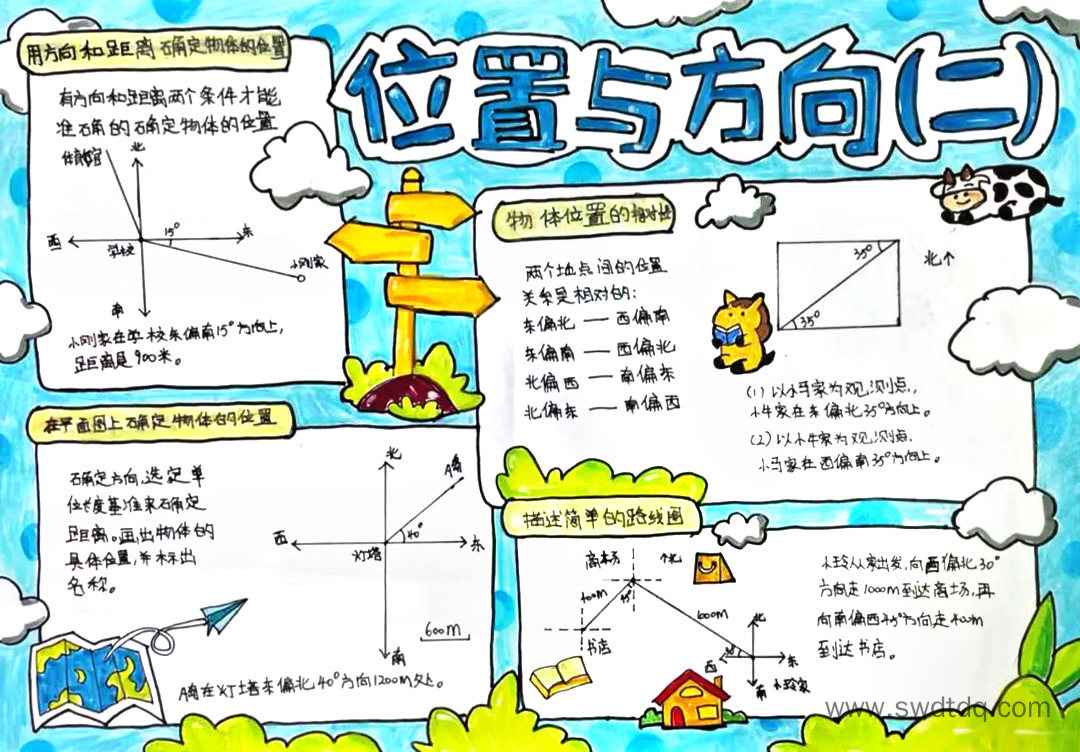 位置与方向(二)
用方向和距离确定物体的位置
有方向和距离两个条件才能
准确的确定物体的位置
体育馆
北
西
15°
东
学校
小刚家
南
小刚家在学校东偏南15°方向上,
距离是900米。
物体位置的相对性
两个地点间的位置
关系是相对的:
东偏北——西偏南
东偏南——西偏北
北偏西——南偏东
北偏东——南偏西
35°
35°
北↑
(1)以小马家为观测点,
小牛家在东偏北35°方向上。
(2)以小牛家为观测点.
小马家在西偏南35°方向上。
在平面图上确定物体的位置
确定方向,选定单
位长度基准来确定
距离。画出物体的
具体位置,并标出
名称。
北
A岛
40°
西
灯塔
东
600m
南
A岛在灯塔东偏北40°方向1200m处。
描述简单的路线图
商场
北
400m
45°
600m
书店
北
西
东
南
小玲家
小玲从家出发,向西偏北30°
方向走1000m到达商场,再
向南偏西45°方向走400m
到达书店。
www.swdtdq.com